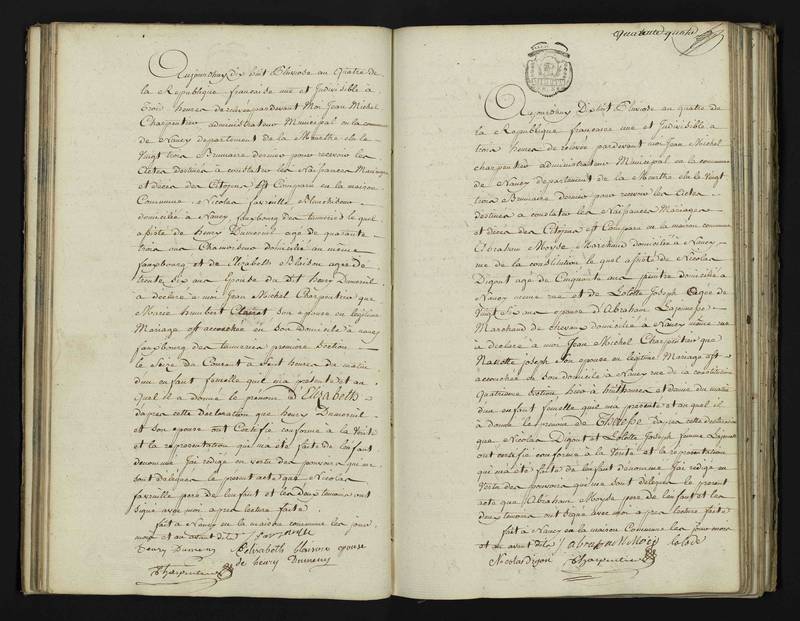 Aujourdhuy Dix huit Pluviose an Quatre de
la Republique francaise une et Indivisible à
trois heures de relevée pardevant Moi Jean Michel
Charpentier administrateur Municipal en la commune
de Nancy departement de la Meurthe elu le
Vingt trois Brumaire dernier pour recevoir les
Actes destinés à constater les Naissances Mariages
et décès des Citoyens Est Comparu en la maison
Commune Nicolas
domicilié à Nancy fauxbourg des tanneries le quel
assisté de henry Dumenil agé de quarante
trois ans Chamoiseur domicilié au même
fauxbourg et de Elizabeth Blaison agée de
trente six ans Epouse du dit henry Dumenil
a déclaré à moi Jean Michel Charpentier que
Marie humbert Clairot son epouse en légitime
Mariage est accouchée en son domicile à nancy
fauxbourg des tanneries première section
le Seize du Courant à Sept heures du matin
d'un enfant femelle qui m'a presenté et au
quel il a donné le prenom d'Elizabeth
d'apres cette declaration que henry Dumenil
et son epouse ont Certifié conforme à la Verité
et la représentation qui m'a été faite de l'enfant
denommé j'ai rédigé en vertu des pouvoirs qui me
sont délégués le present acte que Nicolas
père de l'enfant et les deux temoins ont
signé avec moi apres lecture faite.
fait à Nancy en la maison commune les jour
mois et an avant dits
henry Dumeny Elizabeth blaison epouse
de henry Dumeny
Charpentier
quarante quatre
Aujourdhuy Dix huit Pluviose an quatre de
la Republique francaise une et Indivisible à
trois heures de relevée pardevant moi Jean Michel
charpentier administrateur Municipal en la commune
de Nancy departement de la Meurthe elu le Vingt
trois Brumaire dernier pour recevoir les Actes
destinés à constater les Naissances Mariages
et décès des Citoyens est Comparu en la maison commune
Abraham Moyse Marchand domicilié à Nancy
rue de la constitution le quel assisté de Nicolas
Digout agé de Cinquante ans peintre domicilié à
Nancy même rue et de Lolotte Joseph agée de
Vingt Six ans epouse d'Abraham Lajeunesse
Marchand de chevaux domicilié à Nancy même rue
à déclaré à moi Jean Michel Charpentier que
Nanette joseph Son épouse en légitime Mariage est
accouchée en son domicile à Nancy rue de la constitution
quatrième Section hier à huit heures et demie du matin
d'un enfant femelle qu'il m'a présenté et au quel il
a donné le prenom de d'apres cette declaration
que Nicolas Digout et Lolotte Joseph femme Lajeunesse
ont certifié conforme à la Verité et la représentation
qui m'a été faite de l'enfant denommé J'ai rédigé en
Vertu des pouvoirs qui me sont délégués le present
acte que Abraham Moyse pere de l'enfant et les
deux temoins ont signé avec moi apres lecture faite
fait à Nancy en la maison Commune les jour mois
et an avant dits
Nicolas Digon Charpentier